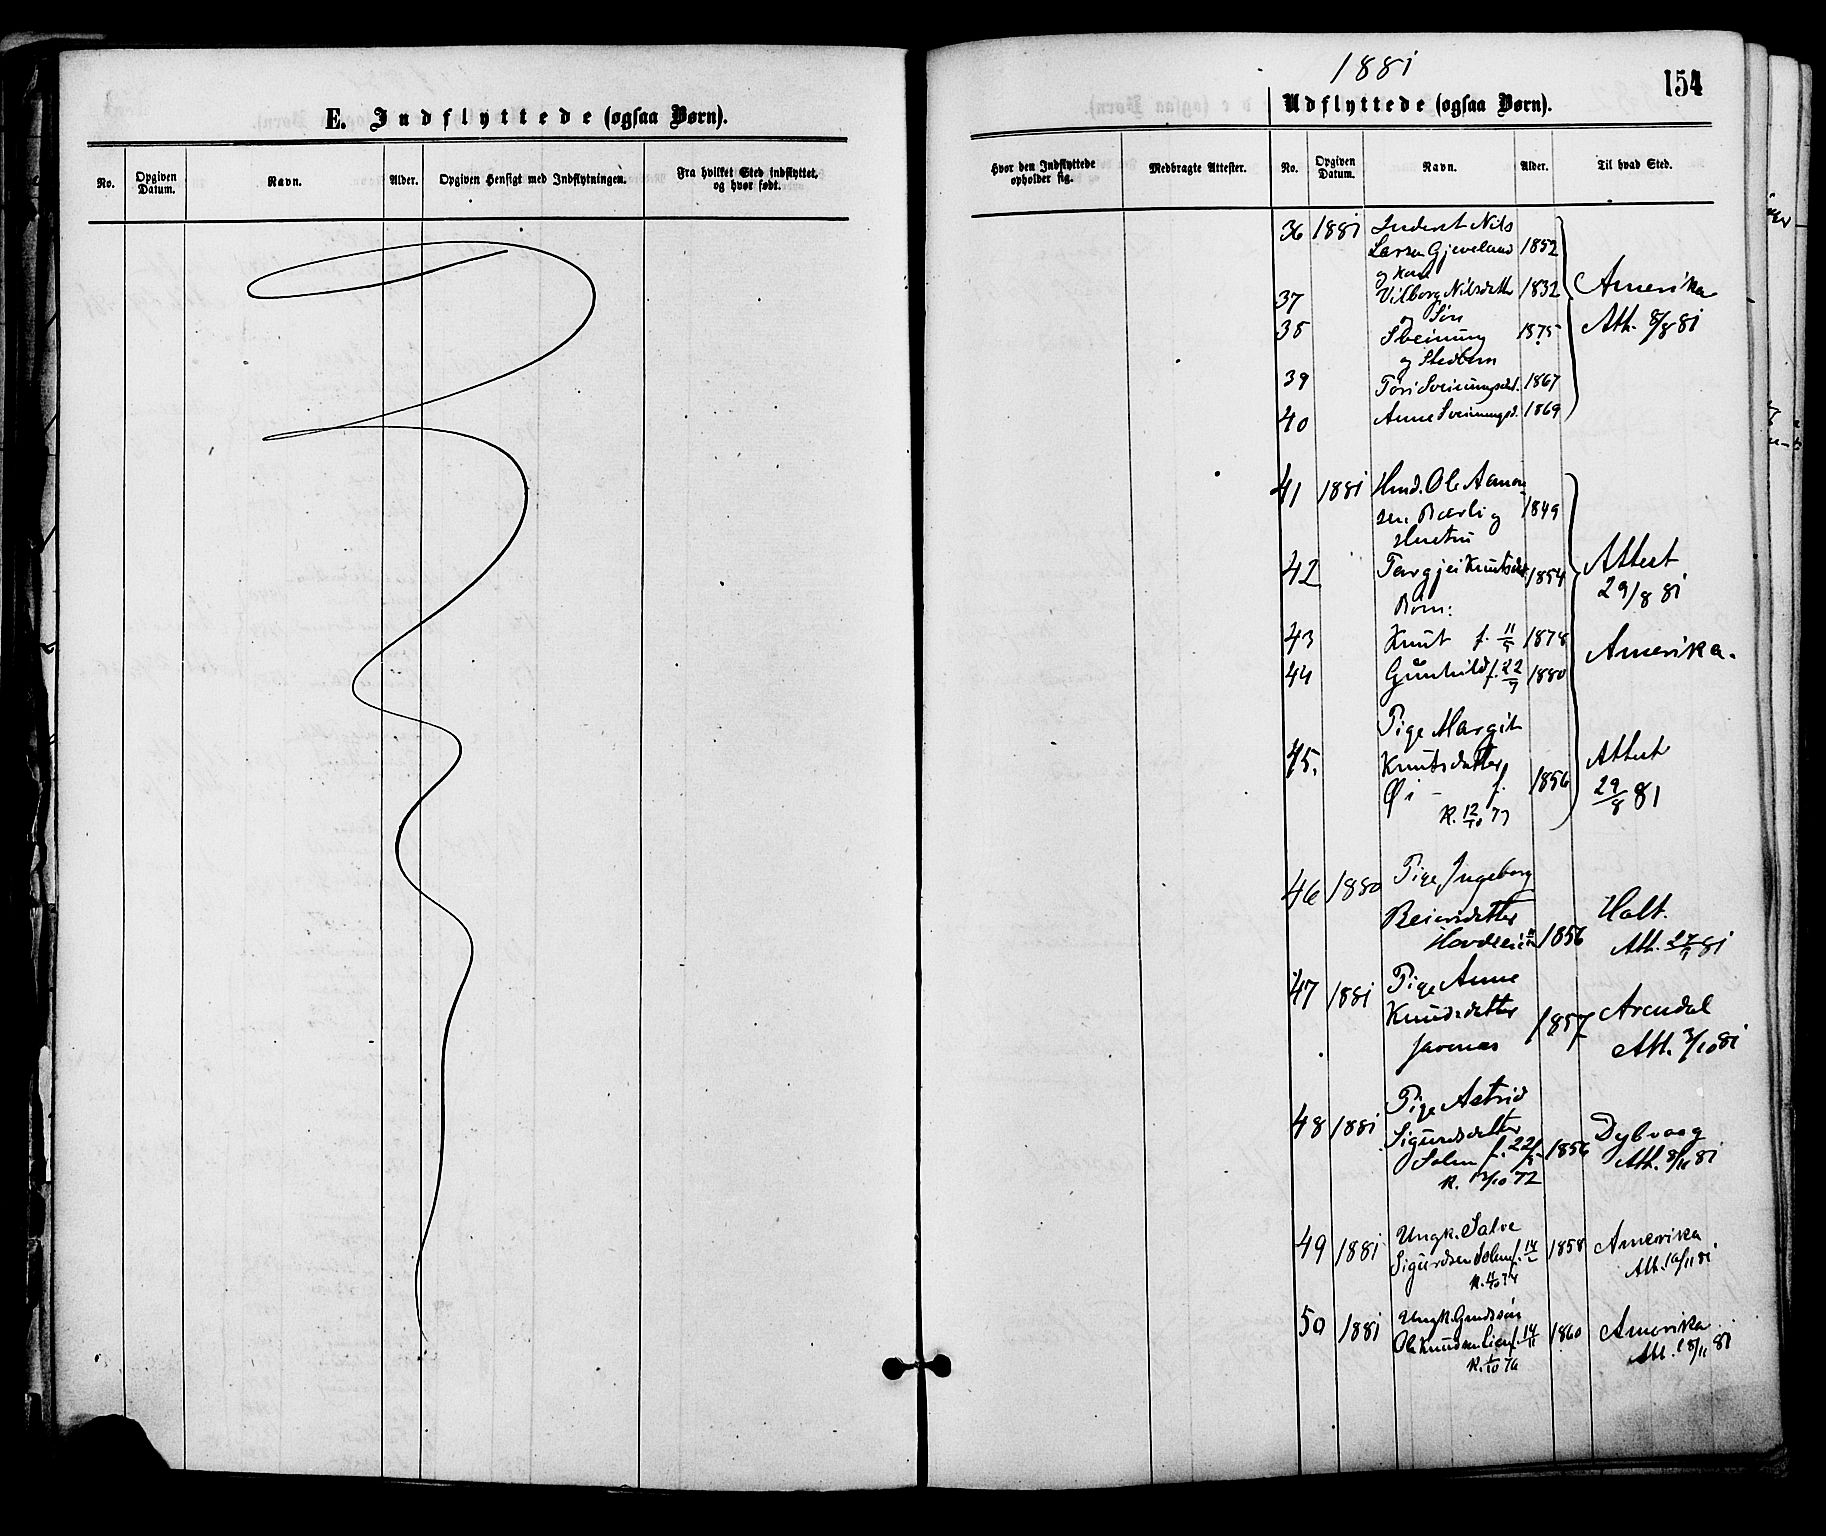 E. Indflyttede (ogsaa Børn).
No.
Opgiven Datum.
Navn.
Alder.
Opgiven Hensigt med Indflytningen.
Fra hvilket Sted indflyttet, og hvor født.
1881
154
Udflyttede (ogsaa Børn).
Hvor den Indflyttede opholder sig.
Medbragte Attester.
No.
Opgiven Datum.
Navn.
Alder.
Til hvad Sted.
36 1881 Inderst Nils
Larsen Gjeveland 1852
og Kone
37 Vilborg Nilsdatter 1832 Amerika
og Søn
38 Sveinung 1875 Att. 8/8 81
og Stedbørn
39 Tori Sveinungsdat. 1867
40 Anne Sveinungsd. 1869
41 1881 Husm. Ole Aamon
sen Bærli og 1849
Hustru
42 Targjei Knutsdat 1854 Attest
29/8 81
Børn:
43 Knut f. 11/5 1878 Amerika.
44 Gunhild f. 22/7 1880
Pige Margit
45. Knutsdatter Attest
Øi - f. 1856 29/8 81
K. 12/10 77
46 1880 Pige Ingeborg
Beiersdatter Holt.
1856 Att. 27/9 81
47 1881 Pige Anne
Knudsdatter 1857 Arendal
Javenæs Att. 3/10 81
48 1881 Pige Astrid
Sigurdsdatter Dybvaag
Solem f. 22/5 1856 Att. 8/11 81
K. 13/10 72
49 1881 Ungk. Salve
Sigurdsen Solem f. 14/2 1858 Amerika
K. 4/10 74 Att. 10/11 81
50 1881 Ungk. Gaardsøn
Ole Knudsen Lien f. 14/11 1860 Amerika
K. 1/10 76 Att. 18/11 81